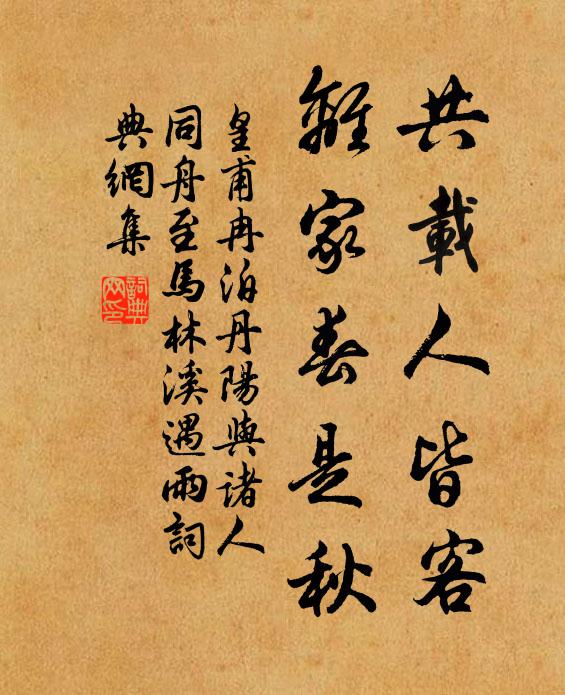 共載人皆客
離家春是秋
皇甫冉泊丹陽與諸人
同舟至馬林溪遇雨詞
典網集
詞典
网印